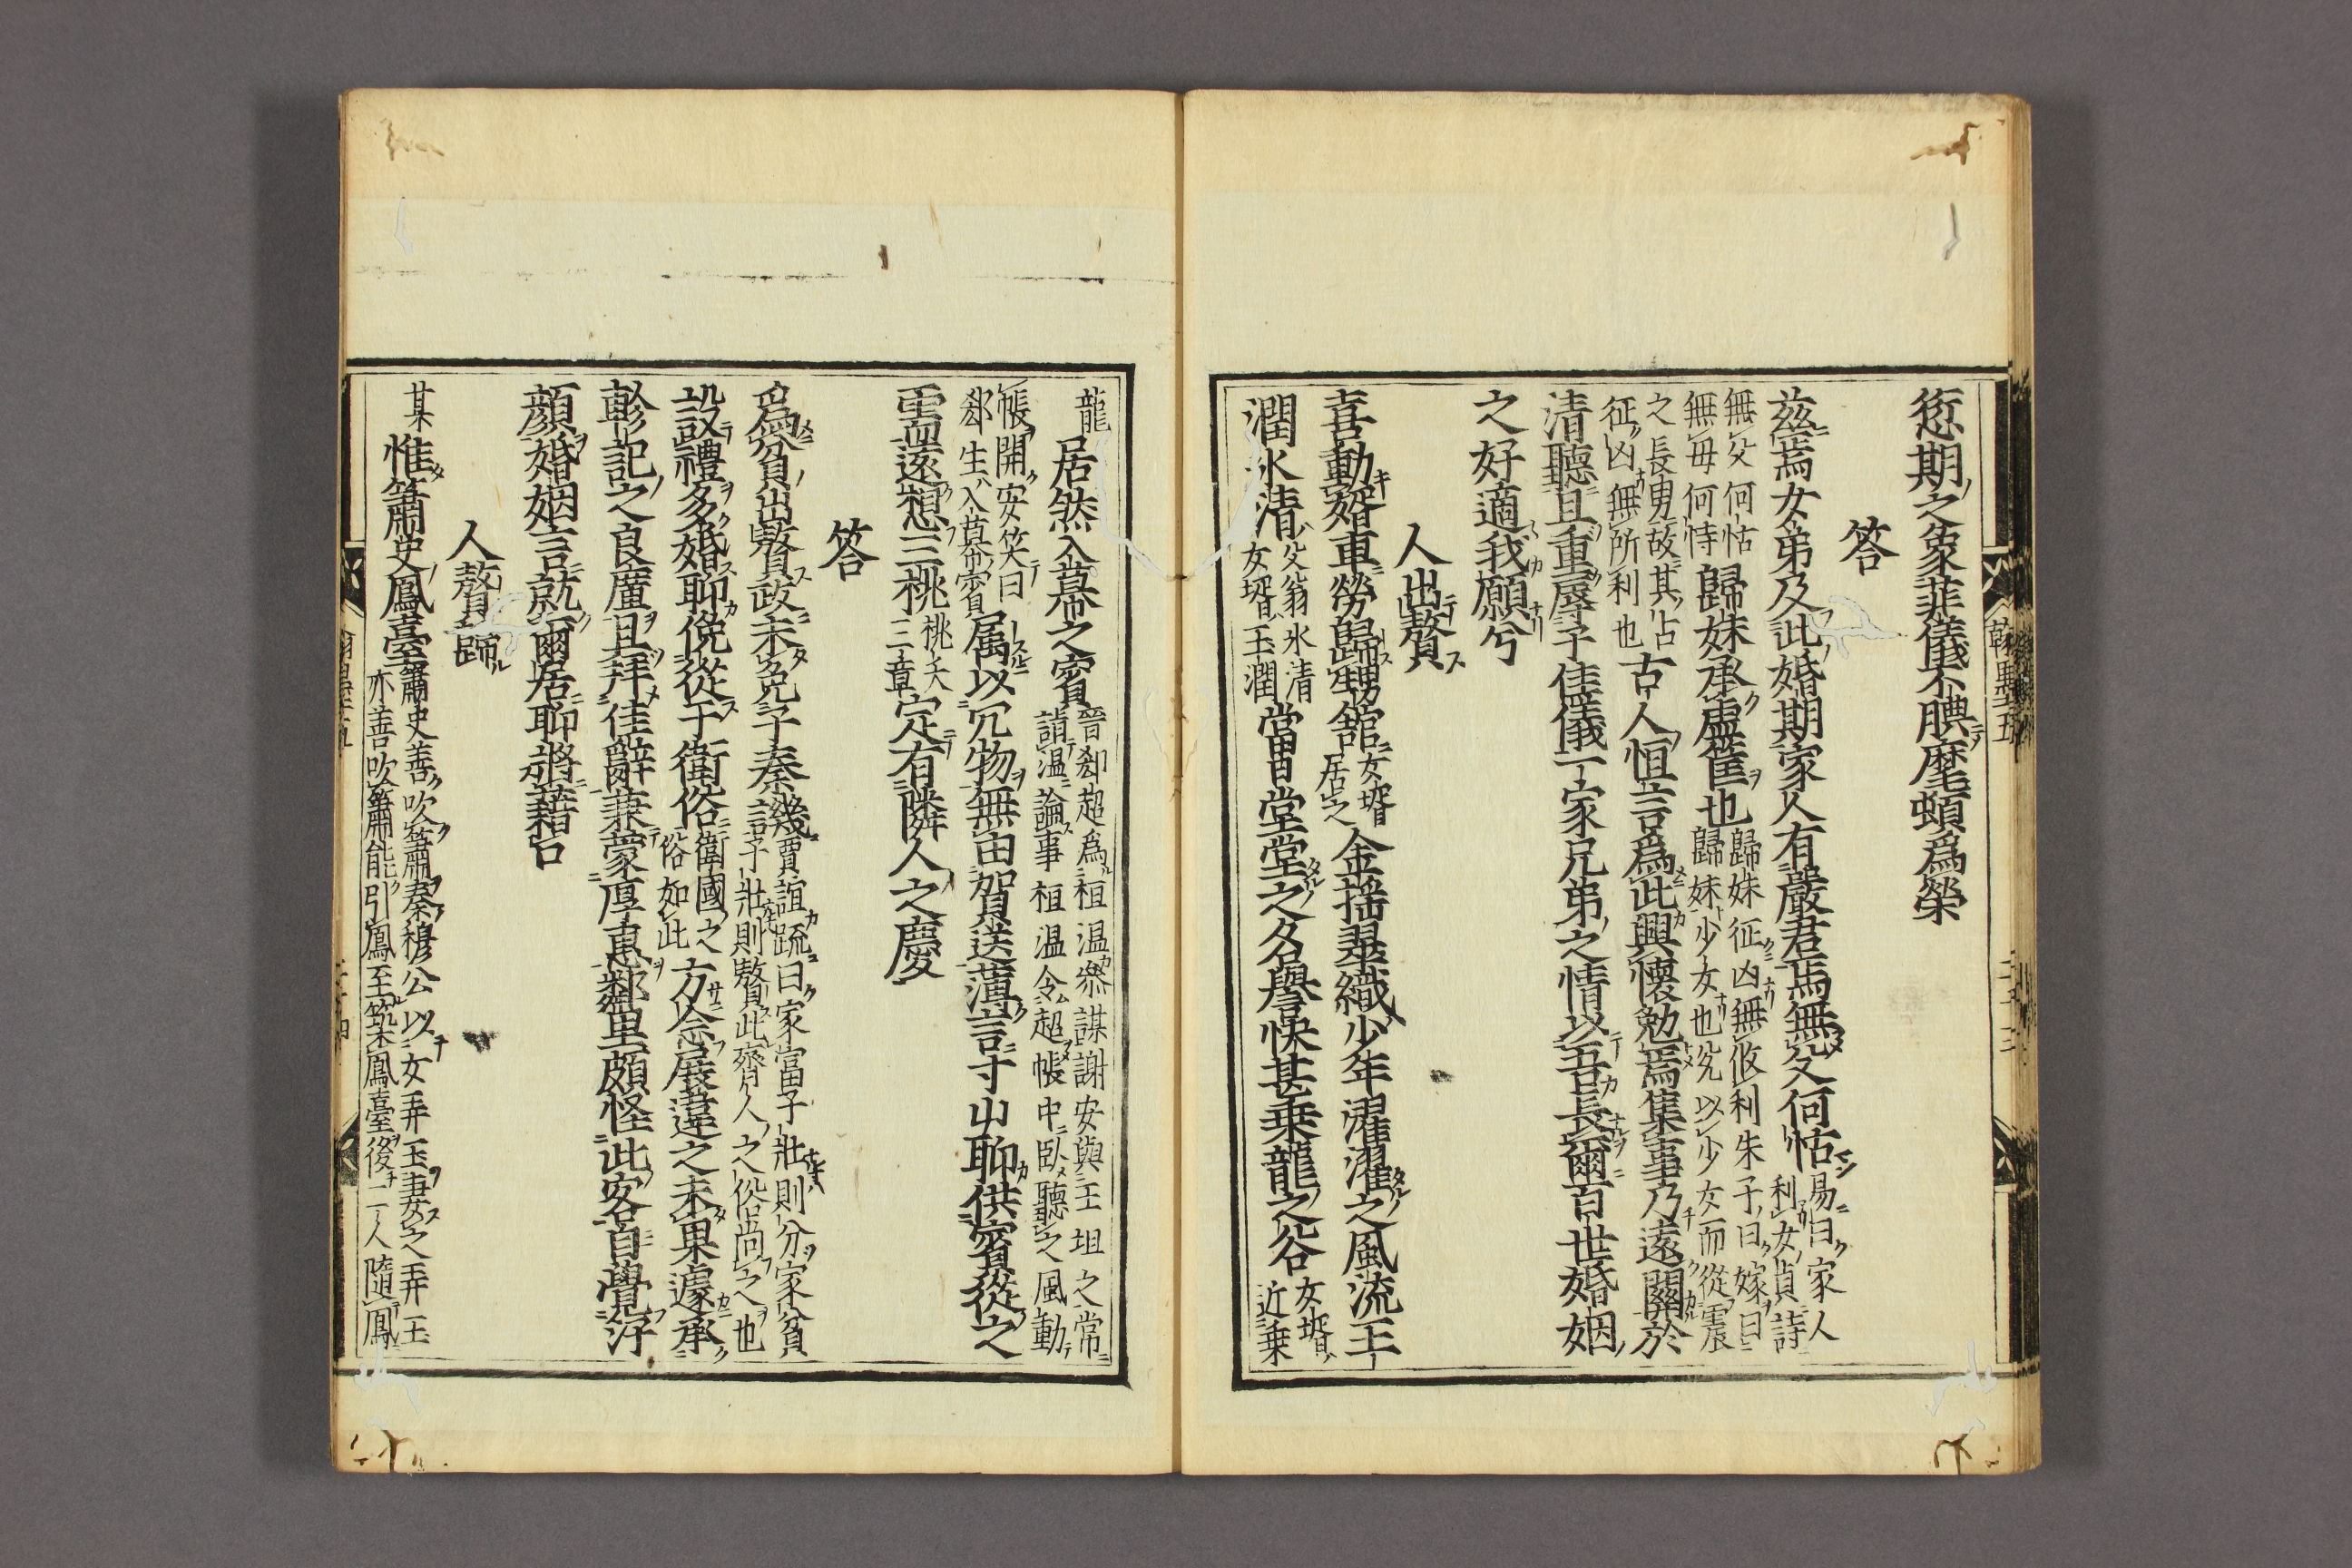 愆期之象菲儀不腆麾頓爲榮
答
茲焉女弟及此婚期家人有嚴君焉無父何怙易曰家人利女貞詩
無父何怙無母何恃歸妹承虛筐也歸妹征凶無攸利朱子曰嫁曰歸妹少女也兊以少女而從震
之長男故其占征凶無所利也古人恒言爲此興懷勉焉集事乃遠關於
清聽且重辱予佳儀一家兄弟之情以吾長爾百世婚姻
之好適我願兮
人出贅
喜動婿車勞歸甥舘女壻居之金揺翠織少年濯濯之風流玉
潤氷清父翁氷清女壻玉潤當田堂堂之名譽快甚乗龍之谷女壻近乗
龍居然入幕之賓晉郄超爲桓温叅謀謝安與王坦之常詣温論事桓温令超帳中臥聽之風動
帳開安笑曰郄生入幕賓属以冗物無由賀送薄言寸屮聊供賓從之
需遠想三桃桃夭三章定有隣人之慶
答
爲貧出贅政未免予秦譏賈誼疏曰家富子壯則分家貧子壯則贅此齊人之俗尚之也
設禮多婚聊俛從于衛俗衛國之俗如此方念展違之未果遽承
軫記之良廑且拜佳辭兼蒙厚惠鄰里頗怪此客百覺汗
顔婚姻言就爾居聊將藉口
人贅歸
某惟簫史鳳臺簫史善吹簫秦穆公以女弄玉妻之弄玉亦善吹簫能引鳳至築鳳臺後二人隨鳳
翰墨五